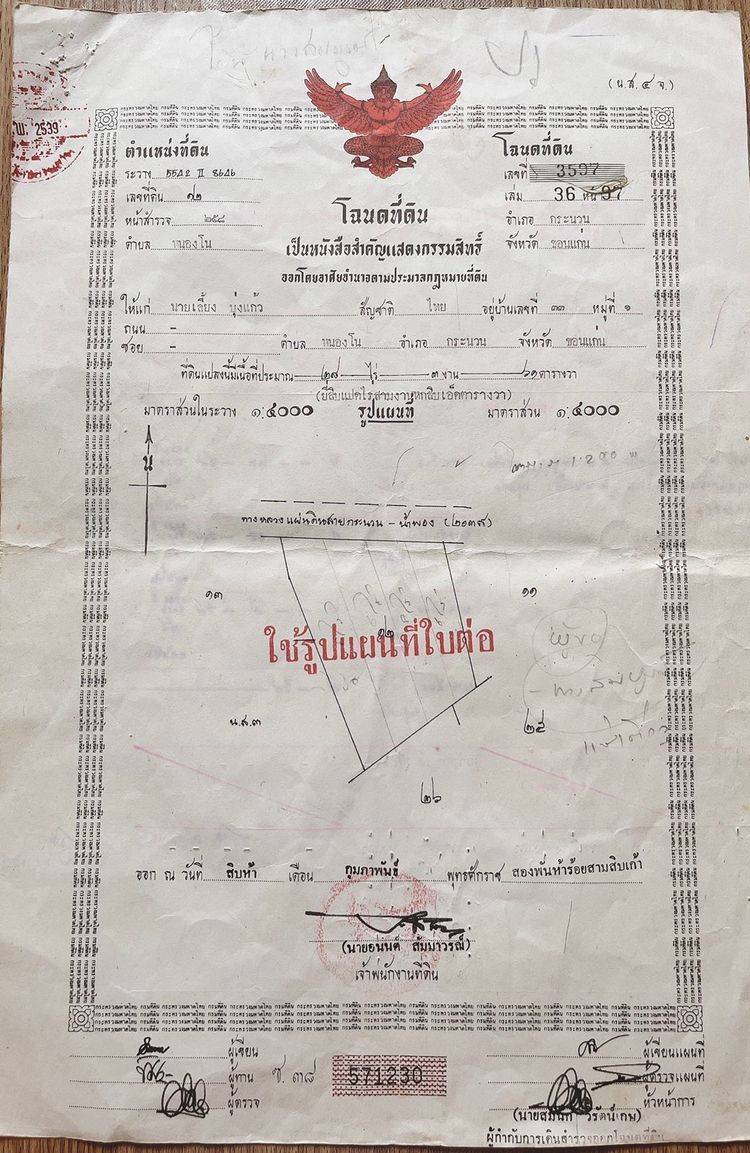 (น.ส.๔ จ.)
พ. 2539
ตำแหน่งที่ดิน
ระวาง 5542 II 8646
เลขที่ดิน ๑๒
หน้าสำรวจ ๒๕๘
ตำบล หนองโน
โฉนดที่ดิน
เลขที่ 3597
เล่ม 36 หน้า 97
อำเภอ กระนวน
จังหวัด ขอนแก่น
โฉนดที่ดิน
เป็นหนังสือสำคัญแสดงกรรมสิทธิ์
ออกโดยอาศัยอำนาจตามประมวลกฎหมายที่ดิน
ให้แก่ นายเลี้ยง บุ่งแก้ว สัญชาติ ไทย อยู่บ้านเลขที่ ๓๓ หมู่ที่ ๑
ถนน -
ซอย - ตำบล หนองโน อำเภอ กระนวน จังหวัด ขอนแก่น
ที่ดินแปลงนี้มีเนื้อที่ประมาณ ๒๘ ไร่ ๓ งาน ๖๑ ตารางวา
(ยี่สิบแปดไร่สามงานหกสิบเอ็ดตารางวา)
มาตราส่วนในระวาง ๑:๔๐๐๐ รูปแผนที่ มาตราส่วน ๑:๔๐๐๐
น
ทางหลวงแผ่นดินสายกระนวน - น้ำพอง (๒๐๓๙)
๑๓
๑๑
๑๒
ใช้รูปแผนที่ใบต่อ
น.ส.๓
๒๕
๒๖
ออก ณ วันที่ สิบห้า เดือน กุมภาพันธ์ พุทธศักราช สองพันห้าร้อยสามสิบเก้า
(นายอนันต์ สัมมาวรณ์)
เจ้าพนักงานที่ดิน
ผู้เขียน
ผู้ทาน
ผู้ตรวจ
ช. ๓๘
571230
ผู้เขียนแผนที่
ผู้ตรวจแผนที่
หัวหน้าการ
(นายสมนึก วิรัตน์เกษ)
ผู้กำกับการเดินสำรวจออกโฉนดที่ดิน